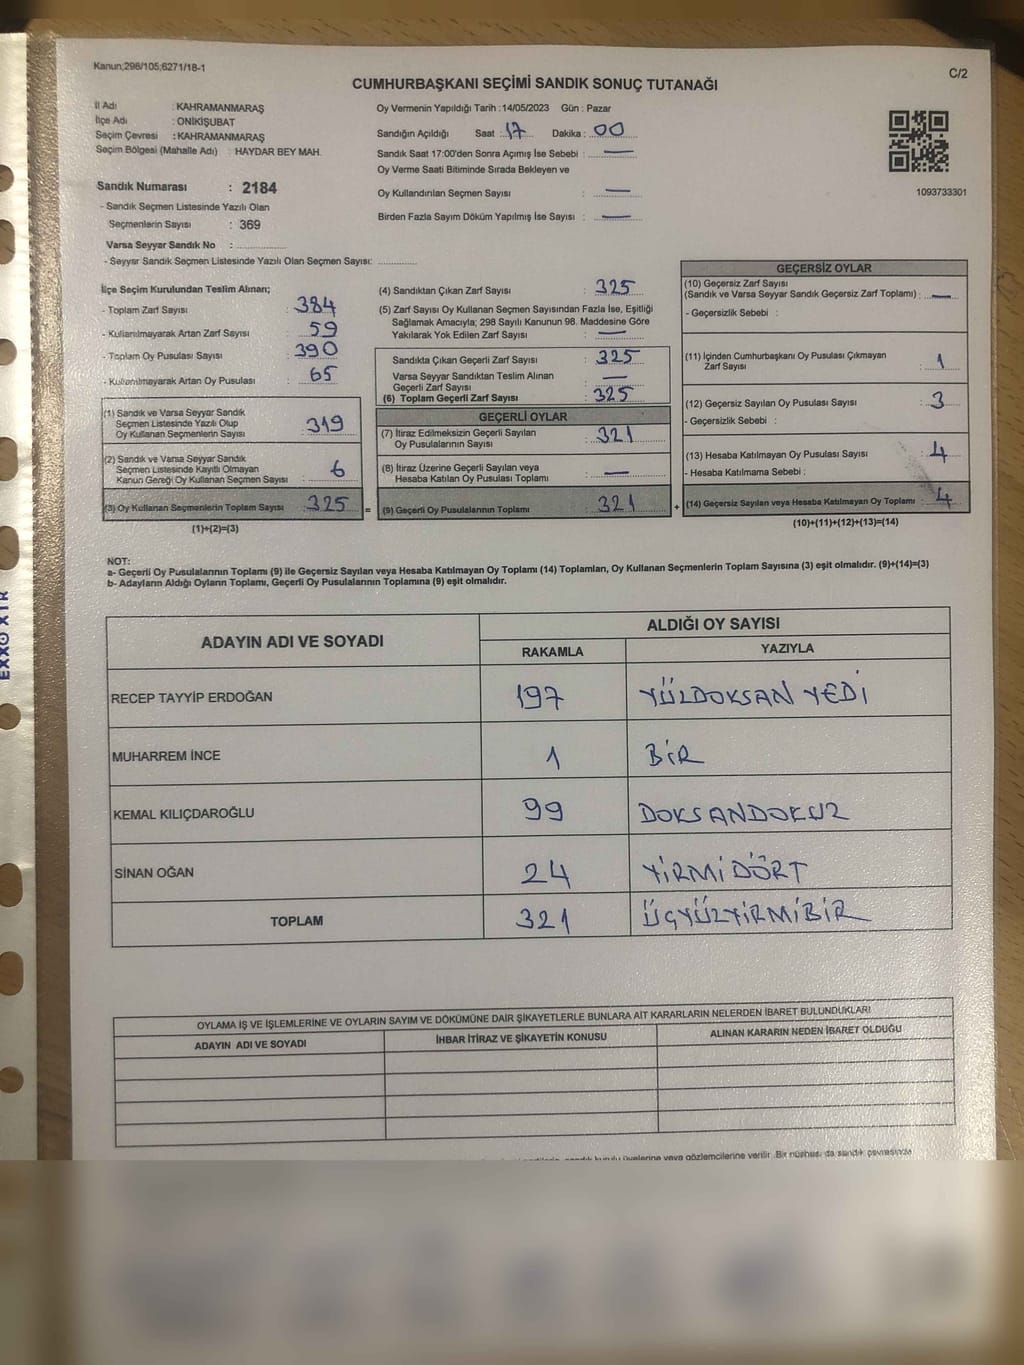 Kanun;298/105;6271/18-1
C/2
CUMHURBAŞKANI SEÇİMİ SANDIK SONUÇ TUTANAĞI
İl Adı : KAHRAMANMARAŞ
İlçe Adı : ONİKİŞUBAT
Seçim Çevresi : KAHRAMANMARAŞ
Seçim Bölgesi (Mahalle Adı) : HAYDAR BEY MAH.
Sandık Numarası : 2184
- Sandık Seçmen Listesinde Yazılı Olan
Seçmenlerin Sayısı : 369
Varsa Seyyar Sandık No : ..............
- Seyyar Sandık Seçmen Listesinde Yazılı Olan Seçmen Sayısı: ............
Oy Vermenin Yapıldığı Tarih : 14/05/2023 Gün : Pazar
Sandığın Açıldığı Saat : 17 Dakika : 00
Sandık Saat 17:00'den Sonra Açımış İse Sebebi : —
Oy Verme Saati Bitiminde Sırada Bekleyen ve
Oy Kullandırılan Seçmen Sayısı : —
Birden Fazla Sayım Döküm Yapılmış İse Sayısı : —
1093733301
İlçe Seçim Kurulundan Teslim Alınan;
- Toplam Zarf Sayısı : 384
- Kullanılmayarak Artan Zarf Sayısı : 59
- Toplam Oy Pusulası Sayısı : 390
- Kullanılmayarak Artan Oy Pusulası : 65
(1) Sandık ve Varsa Seyyar Sandık
Seçmen Listesinde Yazılı Olup
Oy Kullanan Seçmenlerin Sayısı : 319
(2) Sandık ve Varsa Seyyar Sandık
Seçmen Listesinde Kayıtlı Olmayan
Kanun Gereği Oy Kullanan Seçmen Sayısı : 6
(3) Oy Kullanan Seçmenlerin Toplam Sayısı : 325
(1)+(2)=(3)
(4) Sandıktan Çıkan Zarf Sayısı : 325
(5) Zarf Sayısı Oy Kullanan Seçmen Sayısından Fazla İse, Eşitliği
Sağlamak Amacıyla; 298 Sayılı Kanunun 98. Maddesine Göre
Yakılarak Yok Edilen Zarf Sayısı : —
Sandıkta Çıkan Geçerli Zarf Sayısı : 325
Varsa Seyyar Sandıktan Teslim Alınan
Geçerli Zarf Sayısı : —
(6) Toplam Geçerli Zarf Sayısı : 325
GEÇERLİ OYLAR
(7) İtiraz Edilmeksizin Geçerli Sayılan
Oy Pusulalarının Sayısı : 321
(8) İtiraz Üzerine Geçerli Sayılan veya
Hesaba Katılan Oy Pusulası Toplamı : —
= (9) Geçerli Oy Pusulalarının Toplamı : 321
GEÇERSİZ OYLAR
(10) Geçersiz Zarf Sayısı
(Sandık ve Varsa Seyyar Sandık Geçersiz Zarf Toplamı) : —
- Geçersizlik Sebebi :
(11) İçinden Cumhurbaşkanı Oy Pusulası Çıkmayan
Zarf Sayısı : 1
(12) Geçersiz Sayılan Oy Pusulası Sayısı : 3
- Geçersizlik Sebebi :
(13) Hesaba Katılmayan Oy Pusulası Sayısı : 4
- Hesaba Katılmama Sebebi :
+ (14) Geçersiz Sayılan veya Hesaba Katılmayan Oy Toplamı : 4
(10)+(11)+(12)+(13)=(14)
NOT:
a- Geçerli Oy Pusulalarının Toplamı (9) ile Geçersiz Sayılan veya Hesaba Katılmayan Oy Toplamı (14) Toplamları, Oy Kullanan Seçmenlerin Toplam Sayısına (3) eşit olmalıdır. (9)+(14)=(3)
b- Adayların Aldığı Oyların Toplamı, Geçerli Oy Pusulalarının Toplamına (9) eşit olmalıdır.
ADAYIN ADI VE SOYADI
ALDIĞI OY SAYISI
RAKAMLA YAZIYLA
RECEP TAYYİP ERDOĞAN 197 YÜZDOKSAN YEDİ
MUHARREM İNCE 1 BİR
KEMAL KILIÇDAROĞLU 99 DOKSANDOKUZ
SİNAN OĞAN 24 YİRMİDÖRT
TOPLAM 321 ÜÇYÜZYİRMİBİR
OYLAMA İŞ VE İŞLEMLERİNE VE OYLARIN SAYIM VE DÖKÜMÜNE DAİR ŞİKAYETLERLE BUNLARA AİT KARARLARIN NELERDEN İBARET BULUNDUKLARI
ADAYIN ADI VE SOYADI İHBAR İTİRAZ VE ŞİKAYETİN KONUSU ALINAN KARARIN NEDEN İBARET OLDUĞU
sandık kurulu üyelerine veya gözlemcilerine verilir. Bir nüshası da sandık çevresinde